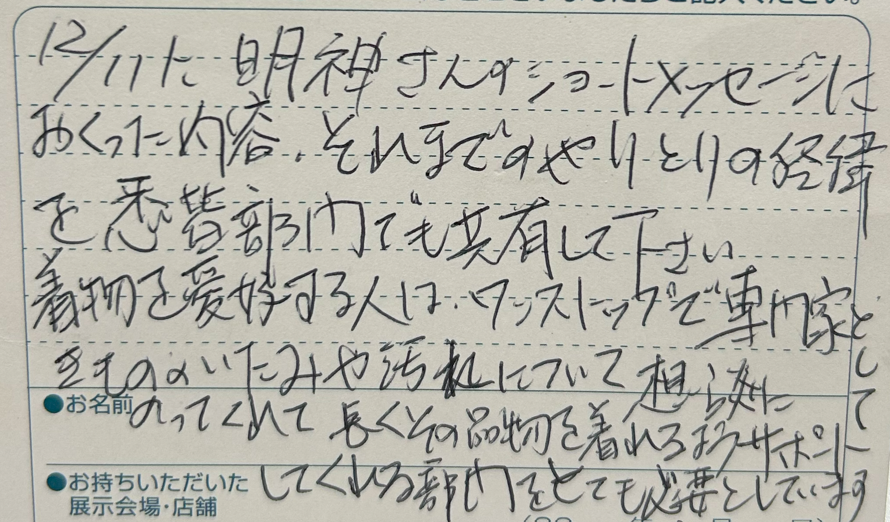 12/11に 明神さんのショートメッセージに
おくった内容、それまでのやりとりの経緯
を悉皆部門でも共有して下さい
着物を愛好する人は、ワンストップで専門家として
きもののいたみや汚れについて 相談に
●お名前 のってくれて 長くその品物を着れるようサポート
●お持ちいただいた してくれる部門をとても必要としています
展示会場・店舗